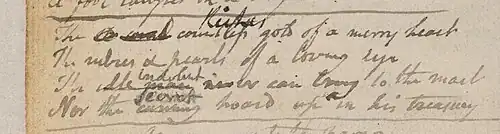 Riches
The countless gold of a merry heart
The rubies & pearls of a loving eye
indolent
The idle man never can bring to the mart
secret
Nor the cunning hoard up in his treasury